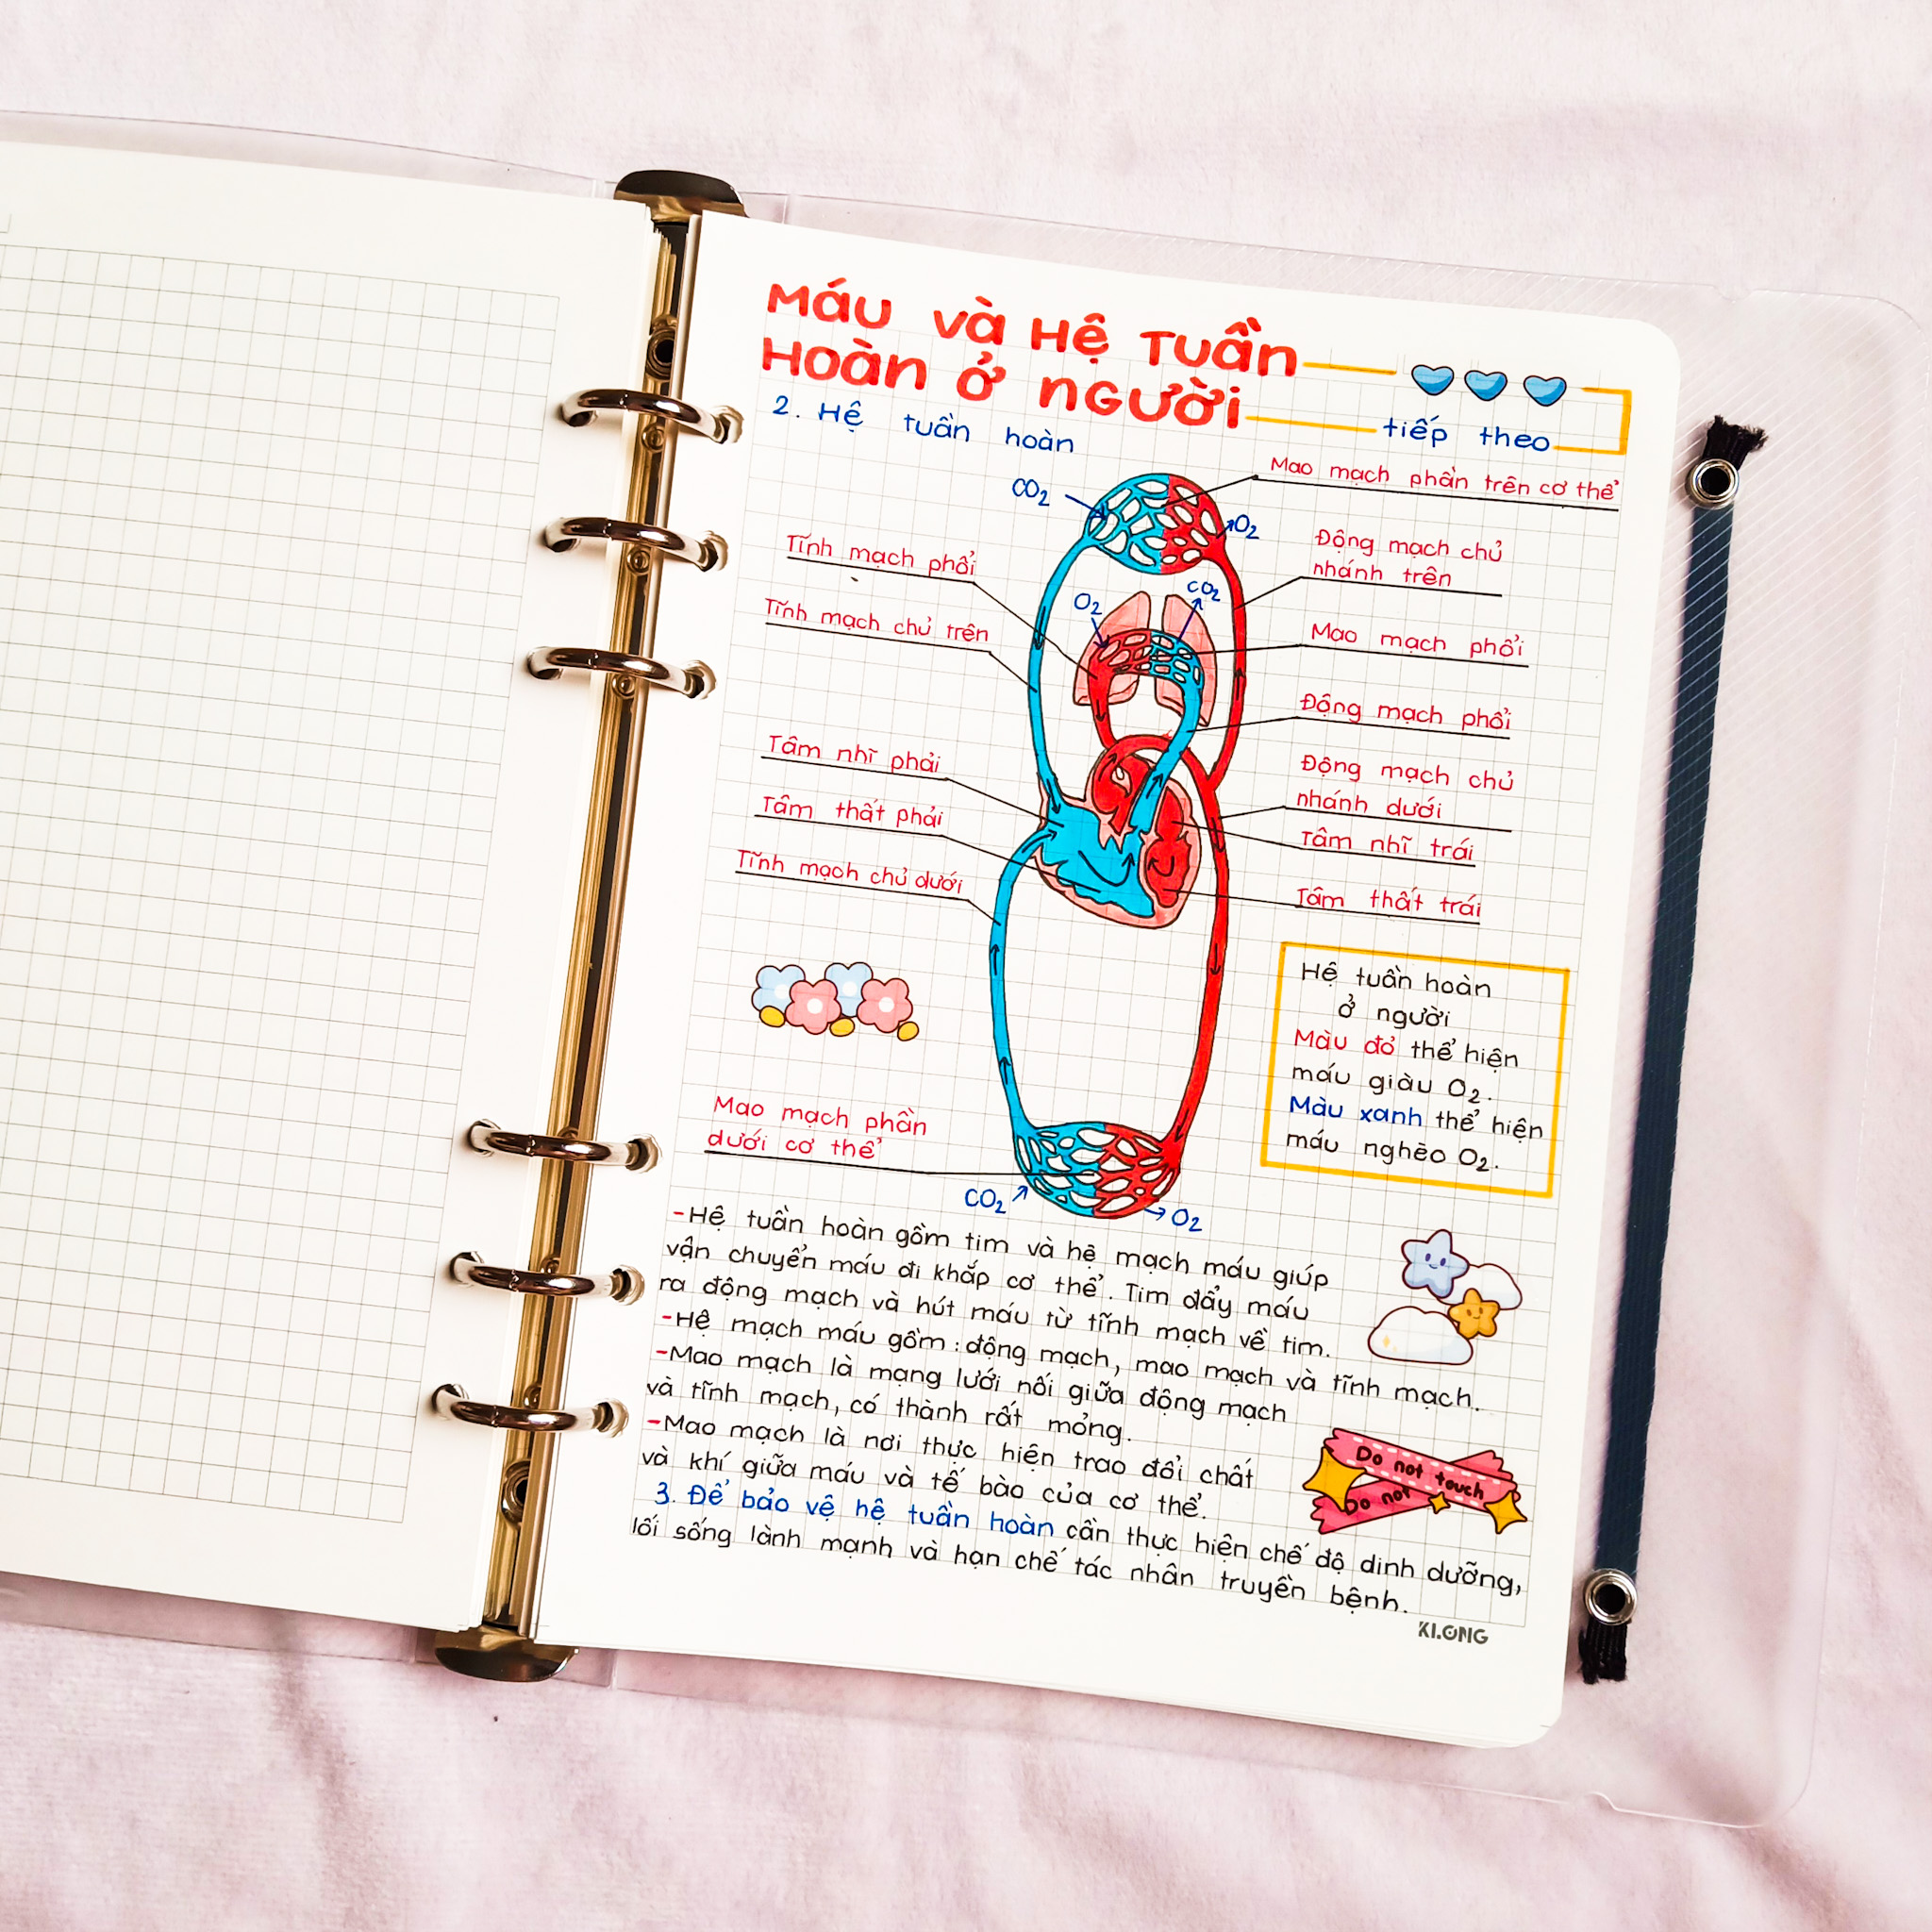 Máu và Hệ Tuần
Hoàn ở người
tiếp theo
2. Hệ tuần hoàn
Mao mạch phần trên cơ thể
CO2
O2
Động mạch chủ
nhánh trên
Tĩnh mạch phổi
O2
CO2
Tĩnh mạch chủ trên
Mao mạch phổi
Động mạch phổi
Tâm nhĩ phải
Động mạch chủ
nhánh dưới
Tâm thất phải
Tâm nhĩ trái
Tĩnh mạch chủ dưới
Tâm thất trái
Hệ tuần hoàn
ở người
Màu đỏ thể hiện
máu giàu O2.
Màu xanh thể hiện
máu nghèo O2.
Mao mạch phần
dưới cơ thể
CO2
O2
-Hệ tuần hoàn gồm tim và hệ mạch máu giúp
vận chuyển máu đi khắp cơ thể. Tim đẩy máu
ra động mạch và hút máu từ tĩnh mạch về tim.
-Hệ mạch máu gồm: động mạch, mao mạch và tĩnh mạch.
-Mao mạch là mạng lưới nối giữa động mạch
và tĩnh mạch, có thành rất mỏng.
-Mao mạch là nơi thực hiện trao đổi chất
và khí giữa máu và tế bào của cơ thể.
Do not touch
Do not
3. Để bảo vệ hệ tuần hoàn cần thực hiện chế độ dinh dưỡng,
lối sống lành mạnh và hạn chế tác nhân truyền bệnh.
KLONG